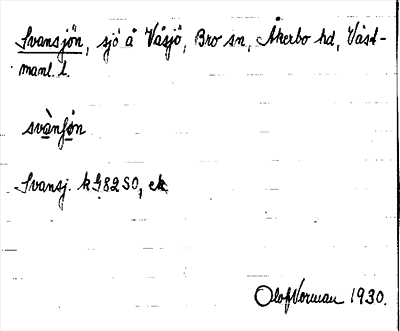 Svansjön, sjö å Våsjö, Bro sn, Åkerbo hd, Väst-
manl. l.
svànʃön
Svansj. k G82SO, ek
Olof Norman 1930.